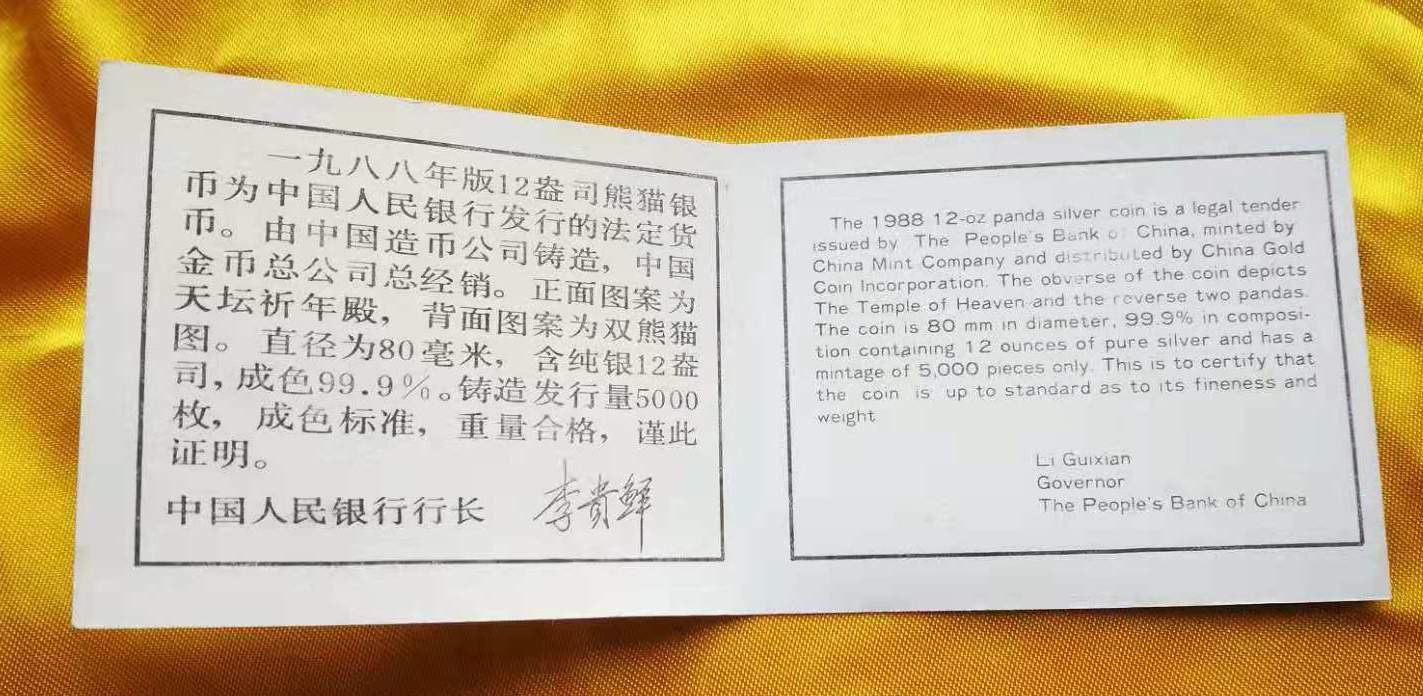 一九八八年版12盎司熊猫银
币为中国人民银行发行的法定货
币。由中国造币公司铸造，中国
金币总公司总经销。正面图案为
天坛祈年殿，背面图案为双熊猫
图。直径为80毫米，含纯银12盎
司，成色99.9%。铸造发行量5000
枚，成色标准，重量合格，谨此
证明。
中国人民银行行长 李贵鲜
The 1988 12-oz panda silver coin is a legal tender
issued by The People's Bank of China, minted by
China Mint Company and distributed by China Gold
Coin Incorporation. The obverse of the coin depicts
The Temple of Heaven and the reverse two pandas.
The coin is 80 mm in diameter, 99.9% in composi-
tion containing 12 ounces of pure silver and has a
mintage of 5,000 pieces only. This is to certify that
the coin is up to standard as to its fineness and
weight
Li Guixian
Governor
The People's Bank of China